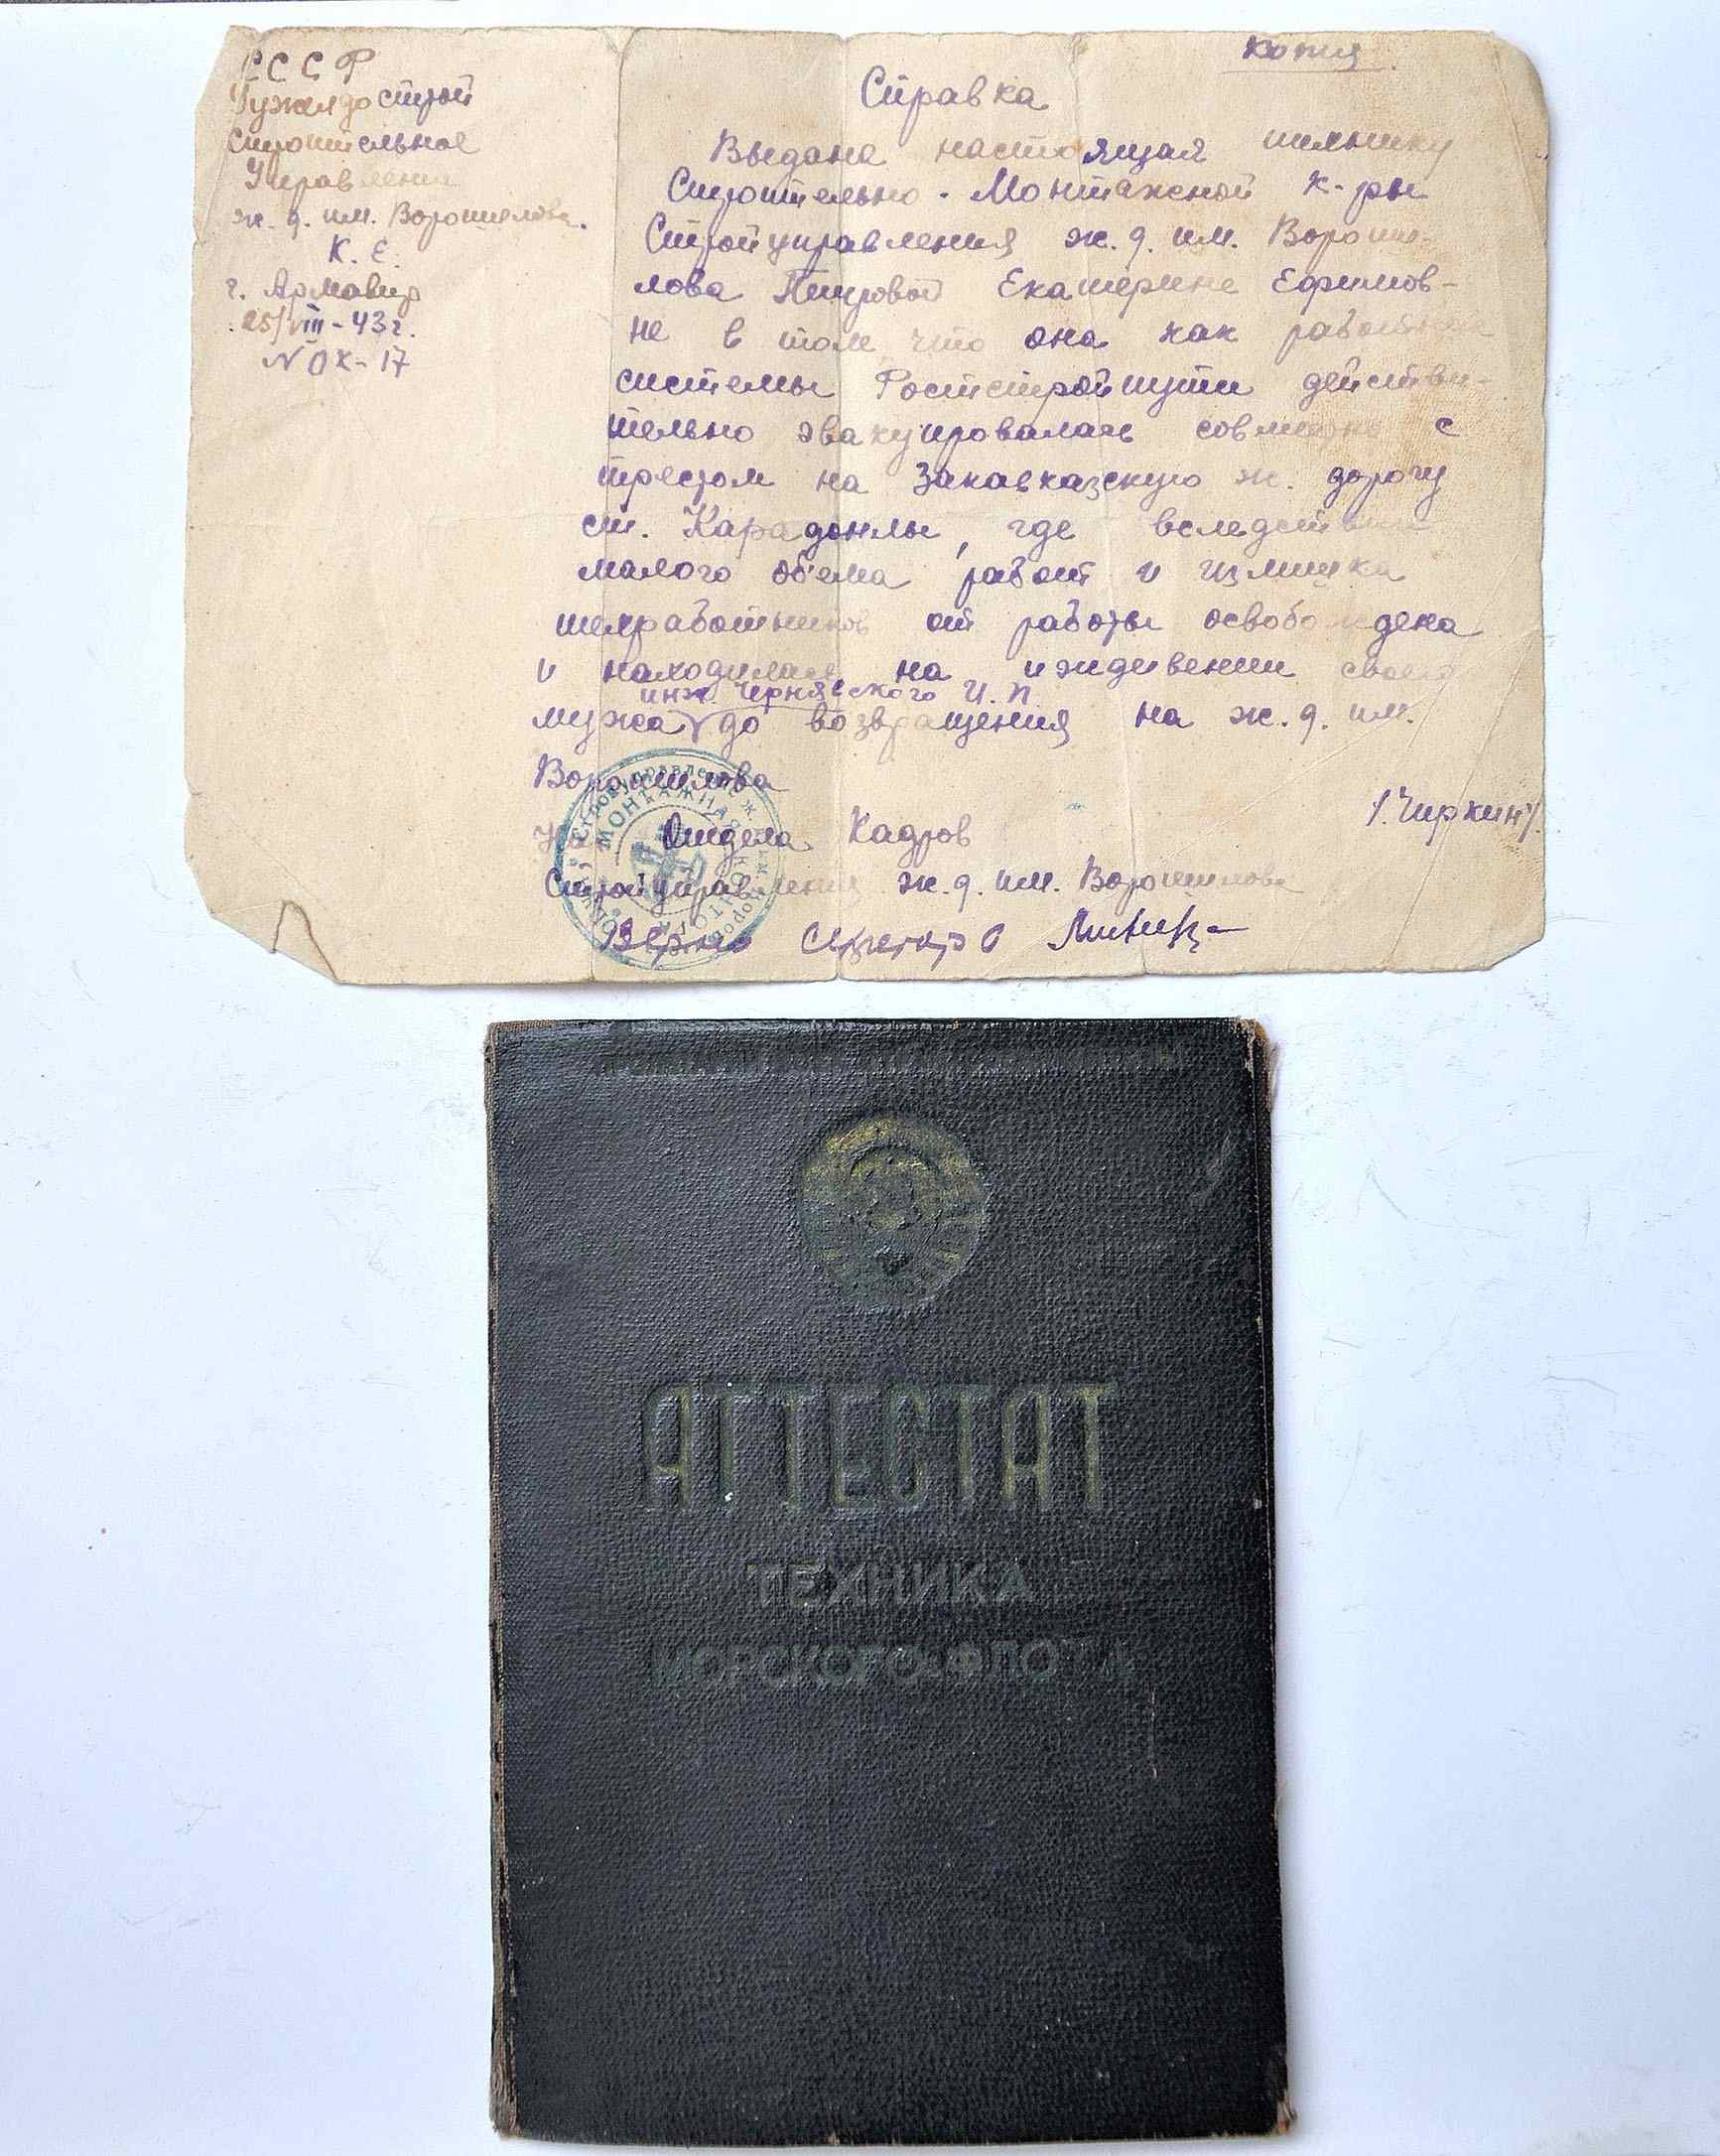 СССР
Гужелдострой
Строительное
Управление
ж. д. им. Ворошилова.
К. Е.
г. Армавир
25/VIII-43 г.
N ОК-17
Копия
Справка
Выдана настоящая технику
Строительно-Монтажной к-ры
Стройуправления ж. д. им.Вороши-
лова Петровой Екатерине Ефимов-
не в том, что она как работник
системы Ростстройпути действи-
тельно эвакуировалась совместно с
трестом на Закавказскую ж. дорогу
ст. Карадонлы, где вследствии
малого об'ема работ и излишка
техработников от работы освобождена
и находилась на иждивении своего
инж. Чернявского И. П.
мужа до возвращения на ж. д. им.
Ворошилова
Отдела Кадров
/Чиркин/.
Стройуправления ж. д. им. Ворошилова
Верно Секретарь
Стройуправление ж.
МОНТАЖНАЯ КОНТОРА
АТТЕСТАТ
ТЕХНИКА
МОРСКОГО ФЛОТА